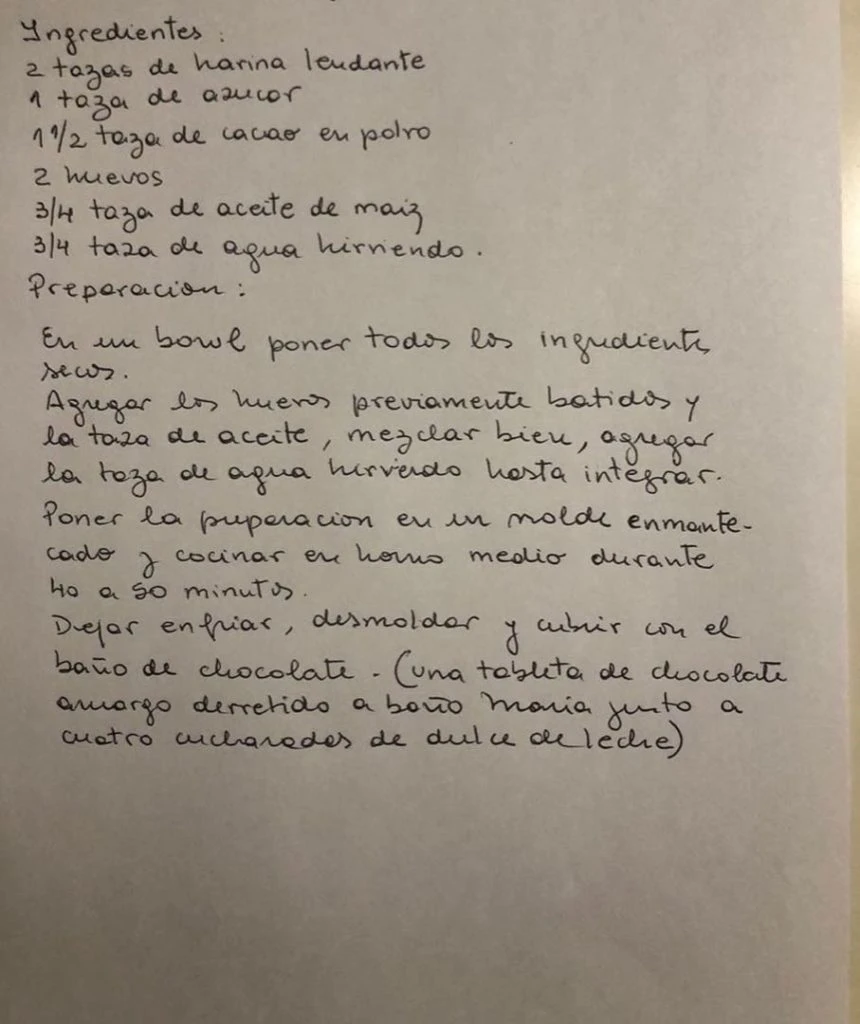 Ingredientes :
2 tazas de harina leudante
1 taza de azucar
1 1/2 taza de cacao en polvo
2 huevos
3/4 taza de aceite de maiz
3/4 taza de agua hirviendo.
Preparacion :
En un bowl poner todos los ingredientes
secos.
Agregar los huevos previamente batidos y
la taza de aceite, mezclar bien, agregar
la taza de agua hirviendo hasta integrar.
Poner la preparacion en un molde enmante-
cado y cocinar en horno medio durante
40 a 50 minutos.
Dejar enfriar, desmoldar y cubrir con el
baño de chocolate - (una tableta de chocolate
amargo derretido a baño Maria junto a
cuatro cucharadas de dulce de leche)